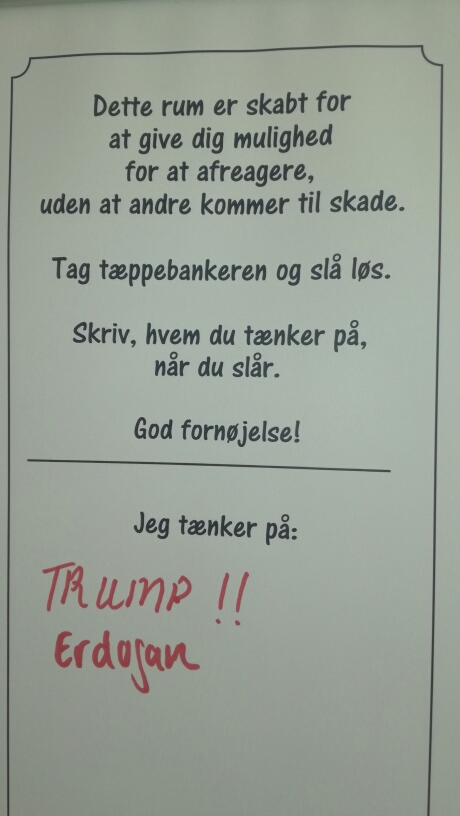 Dette rum er skabt for
at give dig mulighed
for at afreagere,
uden at andre kommer til skade.
Tag tæppebankeren og slå løs.
Skriv, hvem du tænker på,
når du slår.
God fornøjelse!
Jeg tænker på:
TRUMP !!
Erdogan